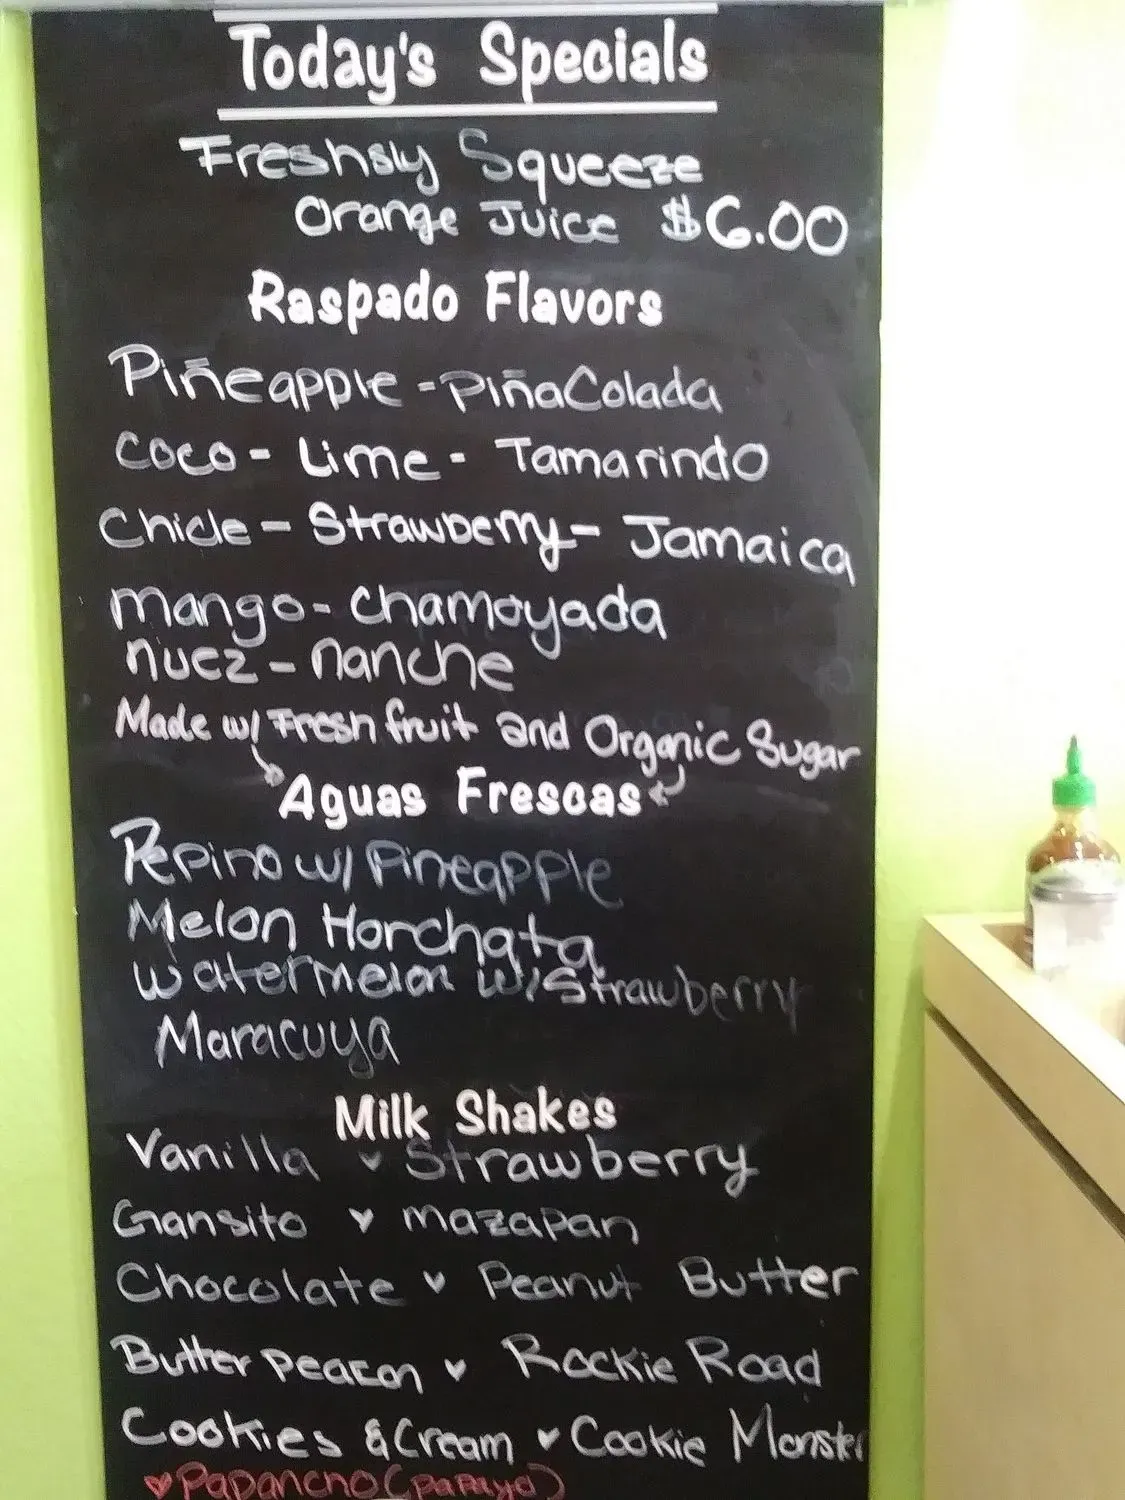 Today's Specials
Freshsly Squeeze
Orange Juice $6.00
Raspado Flavors
Piñeapple - Piña Colada
Coco - Lime - Tamarindo
Chicle - Strawberry - Jamaica
Mango - Chamoyada
Nuez - Nanche
Made w/ Fresh fruit and Organic Sugar
Aguas Frescas
Pepino w/ Pineapple
Melon Horchata
Watermelon w/ Strawberry
Maracuya
Milk Shakes
Vanilla ♥ Strawberry
Gansito ♥ Mazapan
Chocolate ♥ Peanut Butter
Butter Peacon ♥ Rockie Road
Cookies & Cream ♥ Cookie Monster
♥ Papancho (Papaya)